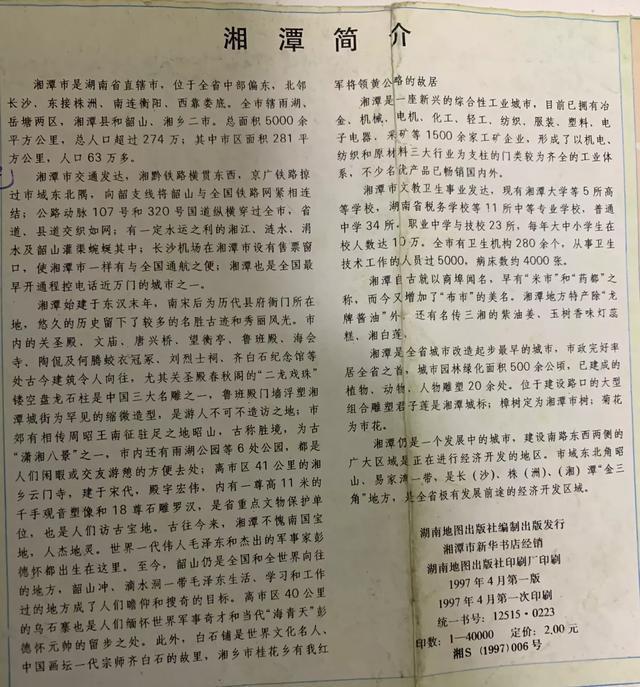 湘潭简介
湘潭市是湖南省直辖市，位于全省中部偏东，北邻
长沙、东接株洲、南连衡阳、西靠娄底。全市辖雨湖、
岳塘两区，湘潭县和韶山、湘乡二市。总面积5000余
平方公里，总人口超过274万；其中市区面积281平
方公里，人口63万多。
湘潭市交通发达，湘黔铁路横贯东西，京广铁路掠
过市域东北隅，向韶支线将韶山与全国铁路网紧相连
结；公路动脉107号和320号国道纵横穿过全市，省
道、县道交织如网；有一定水运之利的湘江、涟水、涓
水及韶山灌渠蜿蜒其中；长沙机场在湘潭市设有售票窗
口，使湘潭市一样有与全国通航之便；湘潭也是全国最
早开通程控电话近万门的城市之一。
湘潭始建于东汉末年，南宋后为历代县府衙门所在
地，悠久的历史留下了较多的名胜古迹和秀丽风光。市
内的关圣殿、文庙、唐兴桥、望衡亭、鲁班殿、海会
寺、陶侃及何腾蛟衣冠冢、刘烈士祠、齐白石纪念馆等
处古今建筑令人向往，尤其关圣殿春秋阁的“二龙戏珠”
镂空盘龙石柱是中国三大名雕之一，鲁班殿门墙浮塑湘
潭城街为罕见的缩微造型，是游人不可不造访之地；市
郊有相传周昭王南征驻足之地昭山，古称胜境，为古
“潇湘八景”之一。市内还有雨湖公园等6处公园，都是
人们闲暇或交友游憩的方便去处；离市区41公里的湘
乡云门寺，建于宋代，殿宇宏伟，内有一尊高11米的
千手观音塑像和18尊石雕罗汉，是省重点文物保护单
位，也是人们访古宝地。古往今来，湘潭不愧南国宝
地，人杰地灵。世界一代伟人毛泽东和杰出的军事家彭
德怀都出生在这里。至今，韶山仍是全国和全世界向往
的地方，韶山冲、滴水洞一带毛泽东生活、学习和工作
过的地方成了人们瞻仰和搜奇的目标。离市区40公里
的乌石寨也是人们缅怀世界军事奇才和当代“海青天”彭
德怀元帅的留步之处。此外，白石铺是世界文化名人、
中国画坛一代宗师齐白石的故里，湘乡市桂花乡有我红
军将领黄公略的故居
湘潭是一座新兴的综合性工业城市，目前已拥有冶
金、机械、电机、化工、轻工、纺织、服装、塑料、电
子电器、采矿等1500余家工矿企业，形成了以机电、
纺织和原材料三大行业为支柱的门类较为齐全的工业体
系，不少名优产品已畅销国内外。
湘潭市文教卫生事业发达，现有湘潭大学等5所高
等学校，湖南省税务学校等11所中等专业学校，普通
中学34所，职业中学与技校23所，每年大中小学生在
校人数达10万。全市有卫生机构280余个，从事卫生
技术工作的人员过5000，病床数约4000张。
湘潭自古就以商埠闻名，早有“米市”和“药都”之
称，而今又增加了“布市”的美名。湘潭地方特产除“龙
牌酱油”外，还有名传三湘的紫油姜、玉树香味灯蕊
糕、湘白莲。
湘潭是全省城市改造起步最早的城市，市政完好率
居全省之首，城市园林绿化面积500余公顷，已建成的
植物、动物、人物雕塑20余处。位于建设路口的大型
组合雕塑君子莲是湘潭城标；樟树定为湘潭市树；菊花
为市花。
湘潭仍是一个发展中的城市，建设南路东西两侧的
广大区域是正在进行经济开发的地区。市域东北角昭
山、易家湾一带，是长（沙）、株（洲）、（湘）潭“金三
角”地方，是全省极有发展前途的经济开发区域。
湖南地图出版社编制出版发行
湘潭市新华书店经销
湖南地图出版社印刷厂印刷
1997年4月第一版
1997年4月第一次印刷
统一书号：12515·0223
印数：1—40000 定价：2.00元
湘S（1997）006号